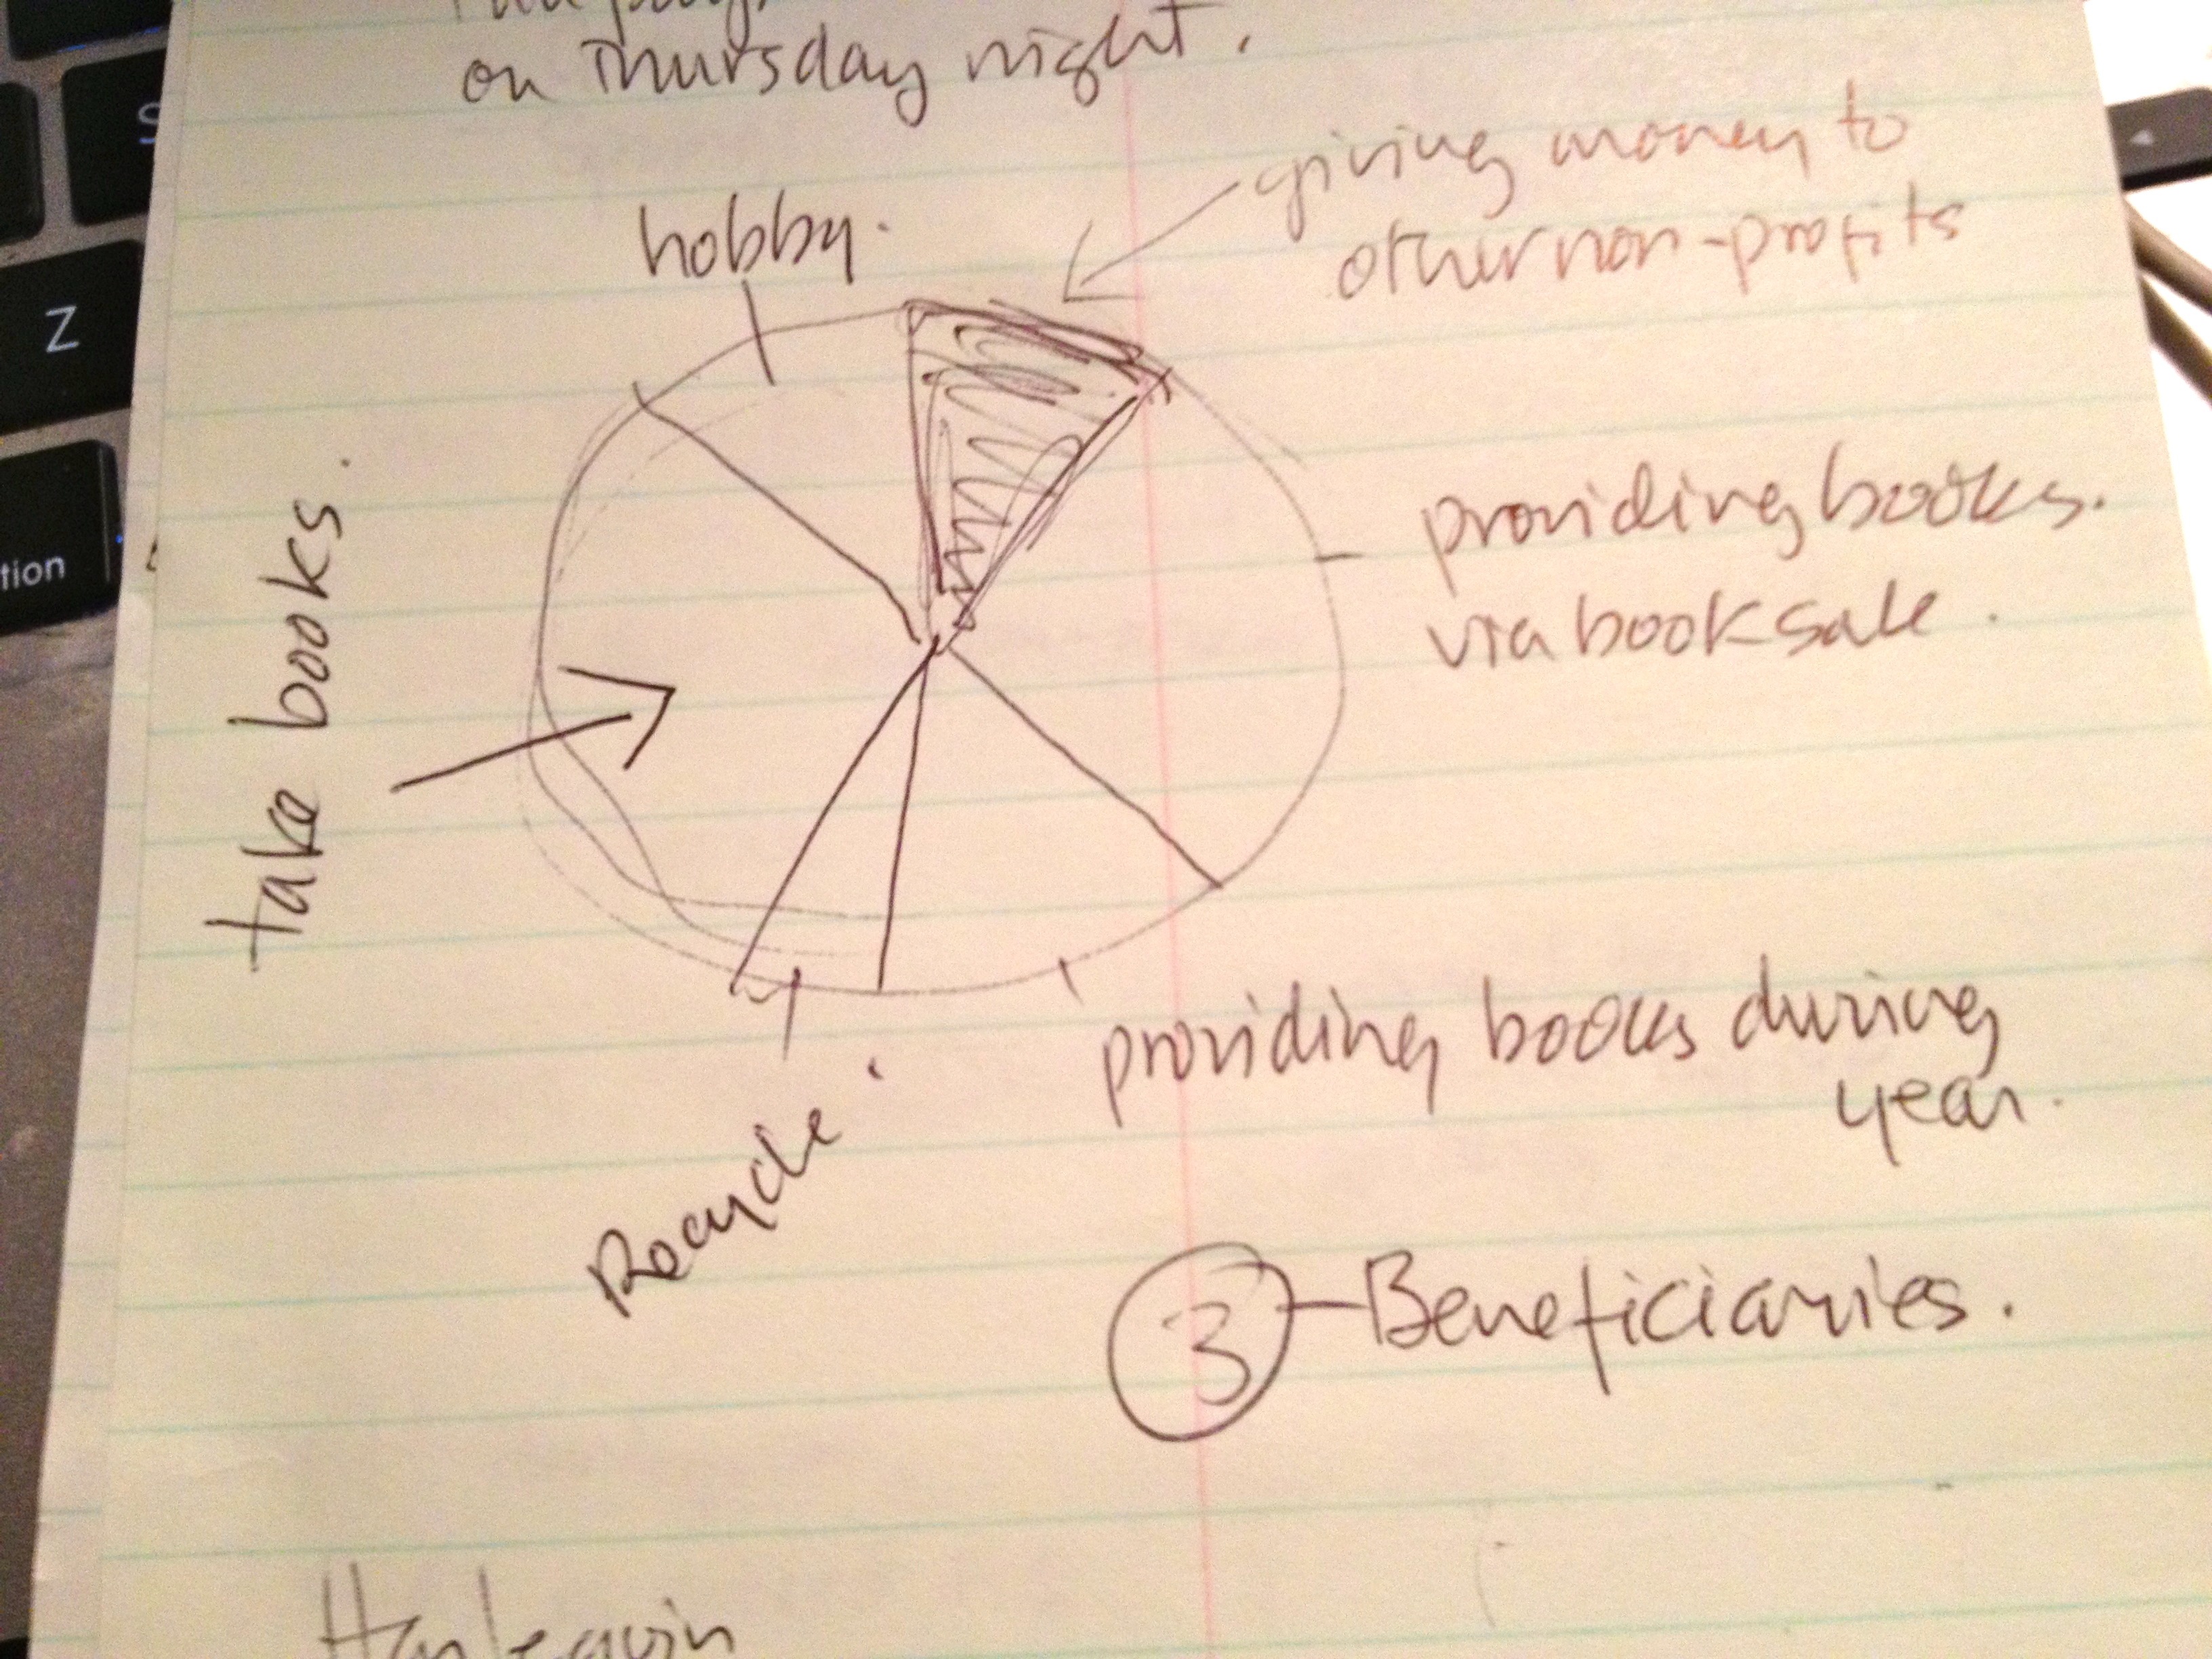 on Thursday night.
hobby.
giving money to
other non-profits
take books.
providing books.
via book sale.
providing books during
year.
Recycle.
3 - Beneficiaries.
Harlequin
S
Z
tion